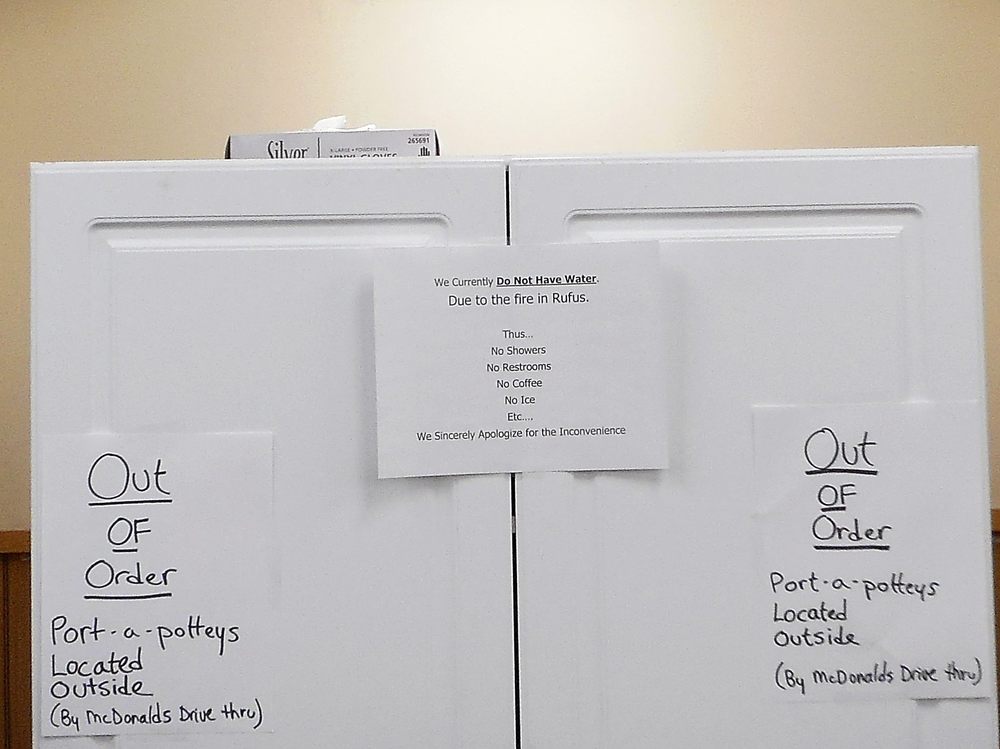 Silvor
X-LARGE • POWDER FREE
265691
VINYL GLOVES
We Currently Do Not Have Water.
Due to the fire in Rufus.
Thus...
No Showers
No Restrooms
No Coffee
No Ice
Etc....
We Sincerely Apologize for the Inconvenience
Out
OF
Order
Port-a-potteys
Located
Outside
(By McDonalds Drive thru)
Out
OF
Order
Port-a-potteys
Located
Outside
(By McDonalds Drive thru)